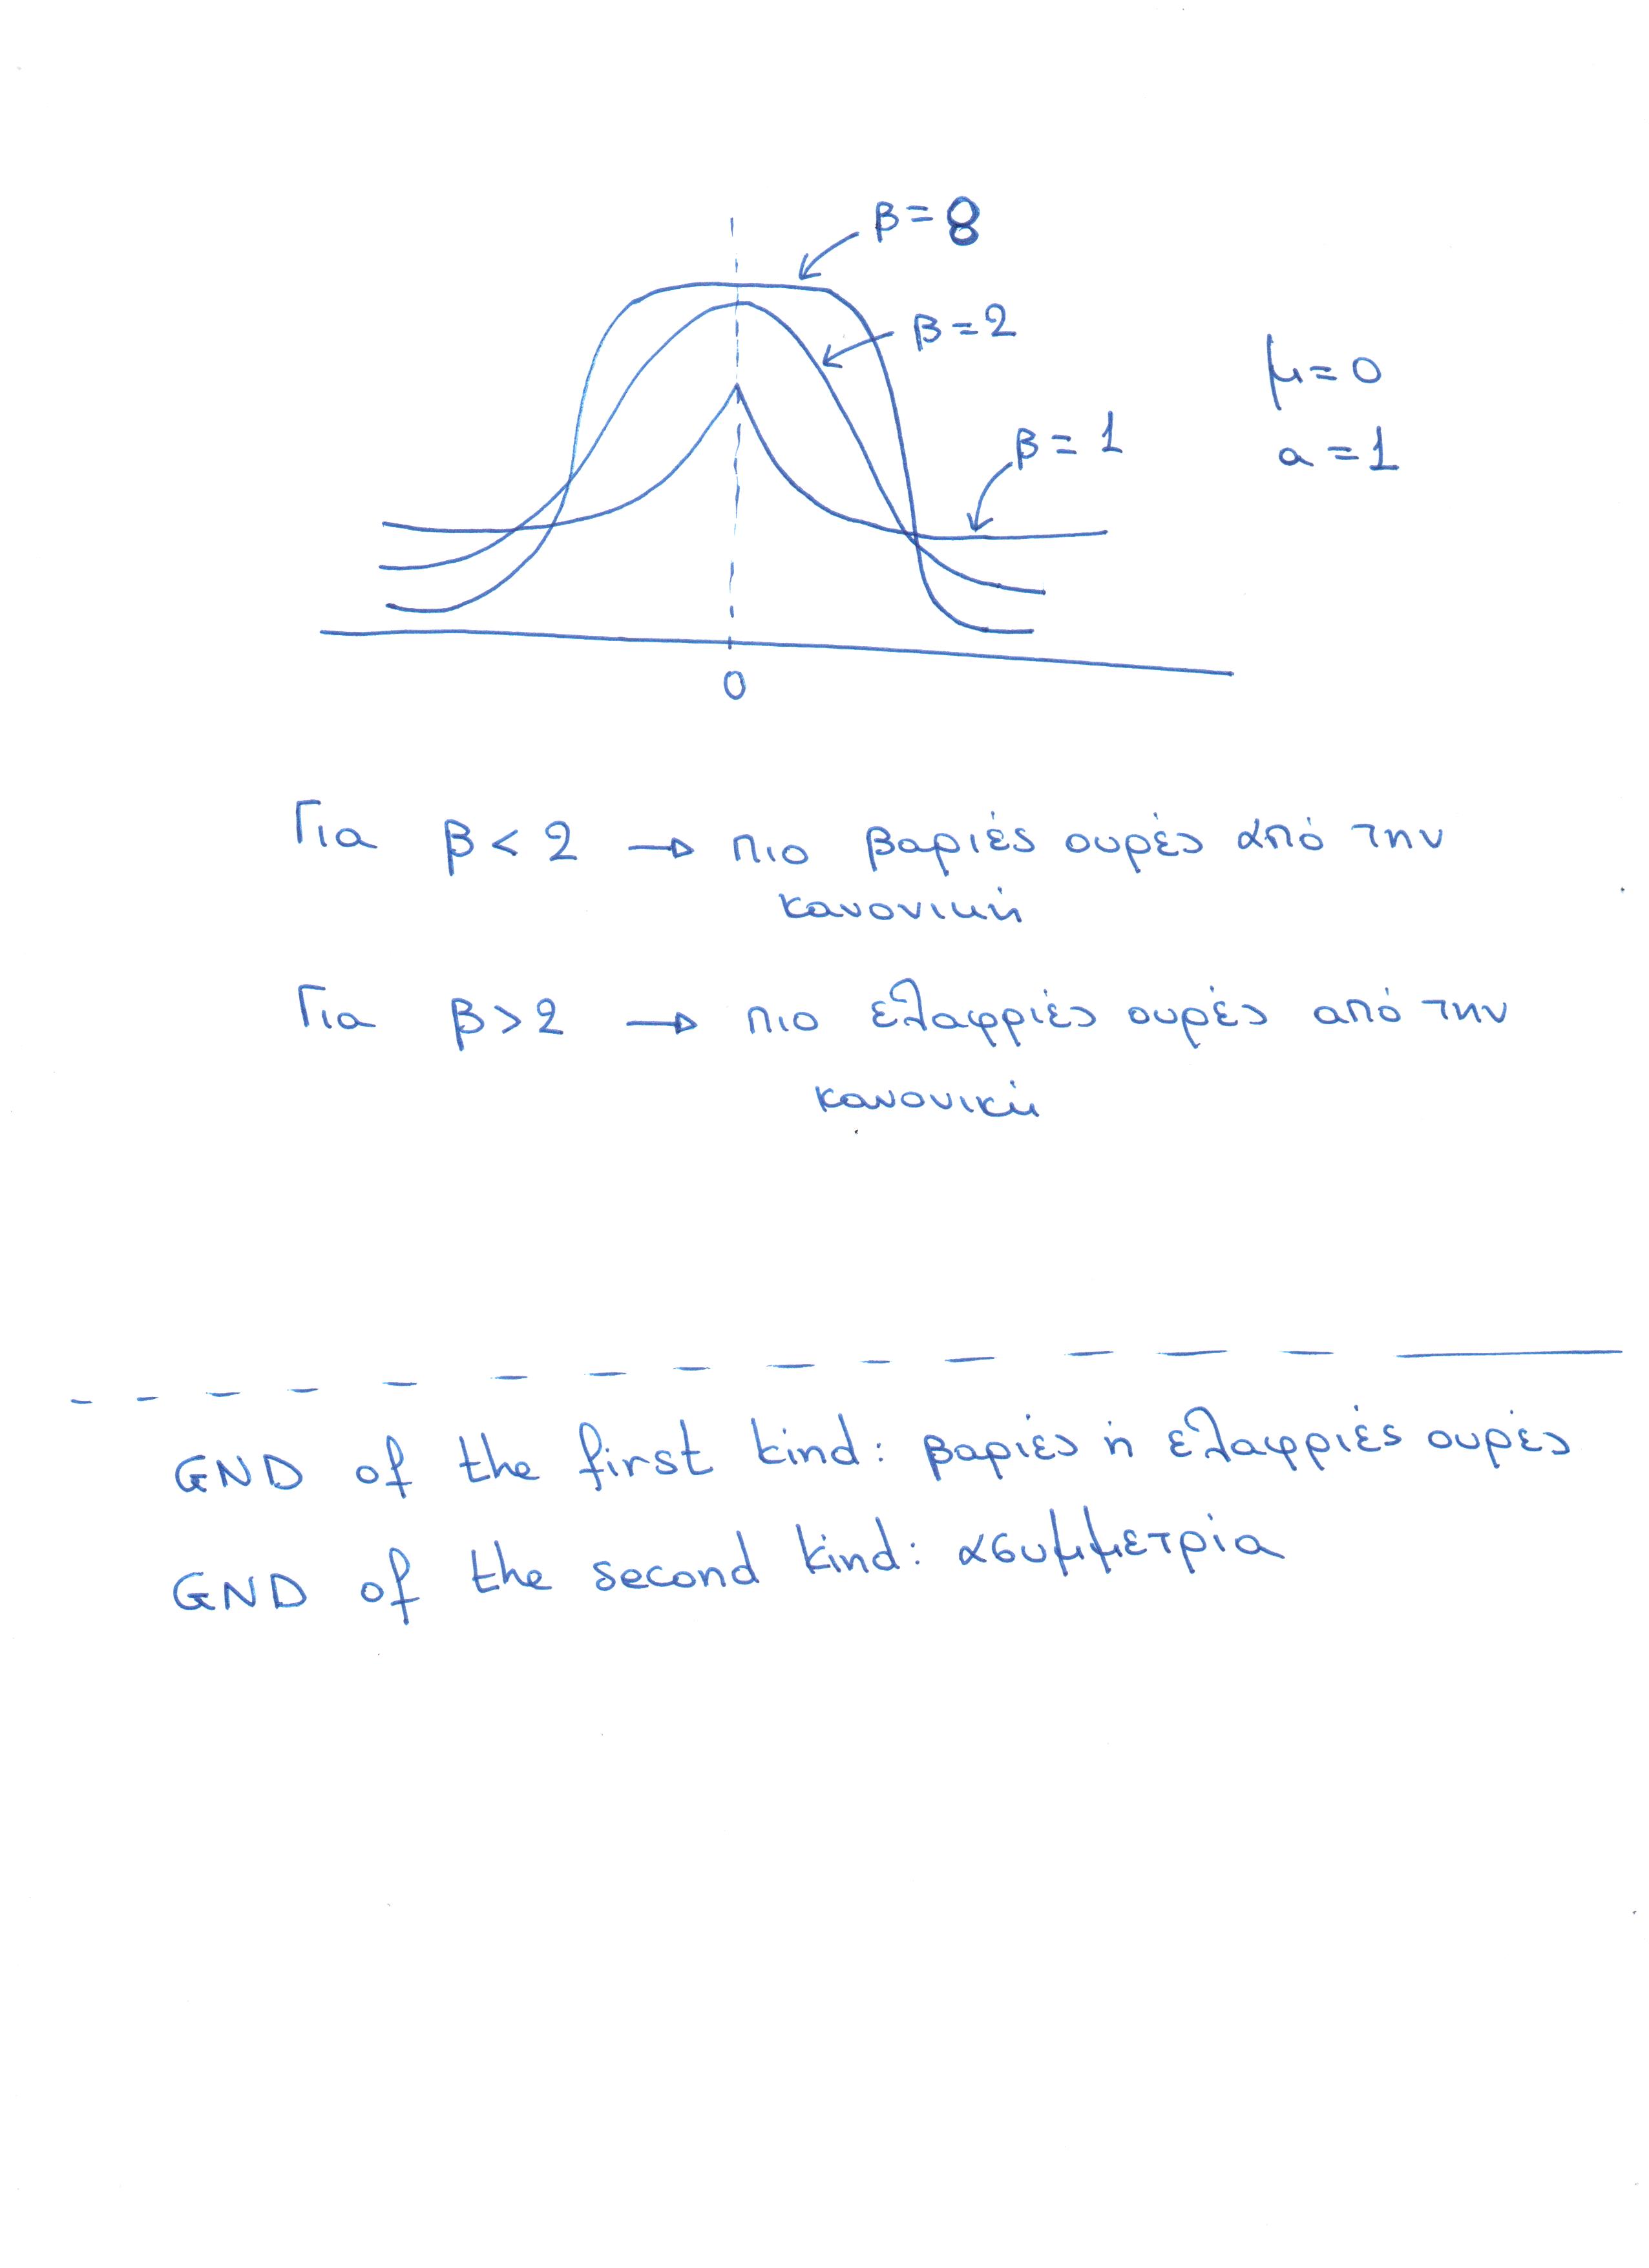 β=8
β=2
μ=0
β=1
α=1
0
Για β<2 → πιο βαριές ουρές από την
κανονική
Για β>2 → πιο ελαφριές ουρές από την
κανονική
GND of the first kind: βαριές ή ελαφριές ουρές
GND of the second kind: ασυμμετρία